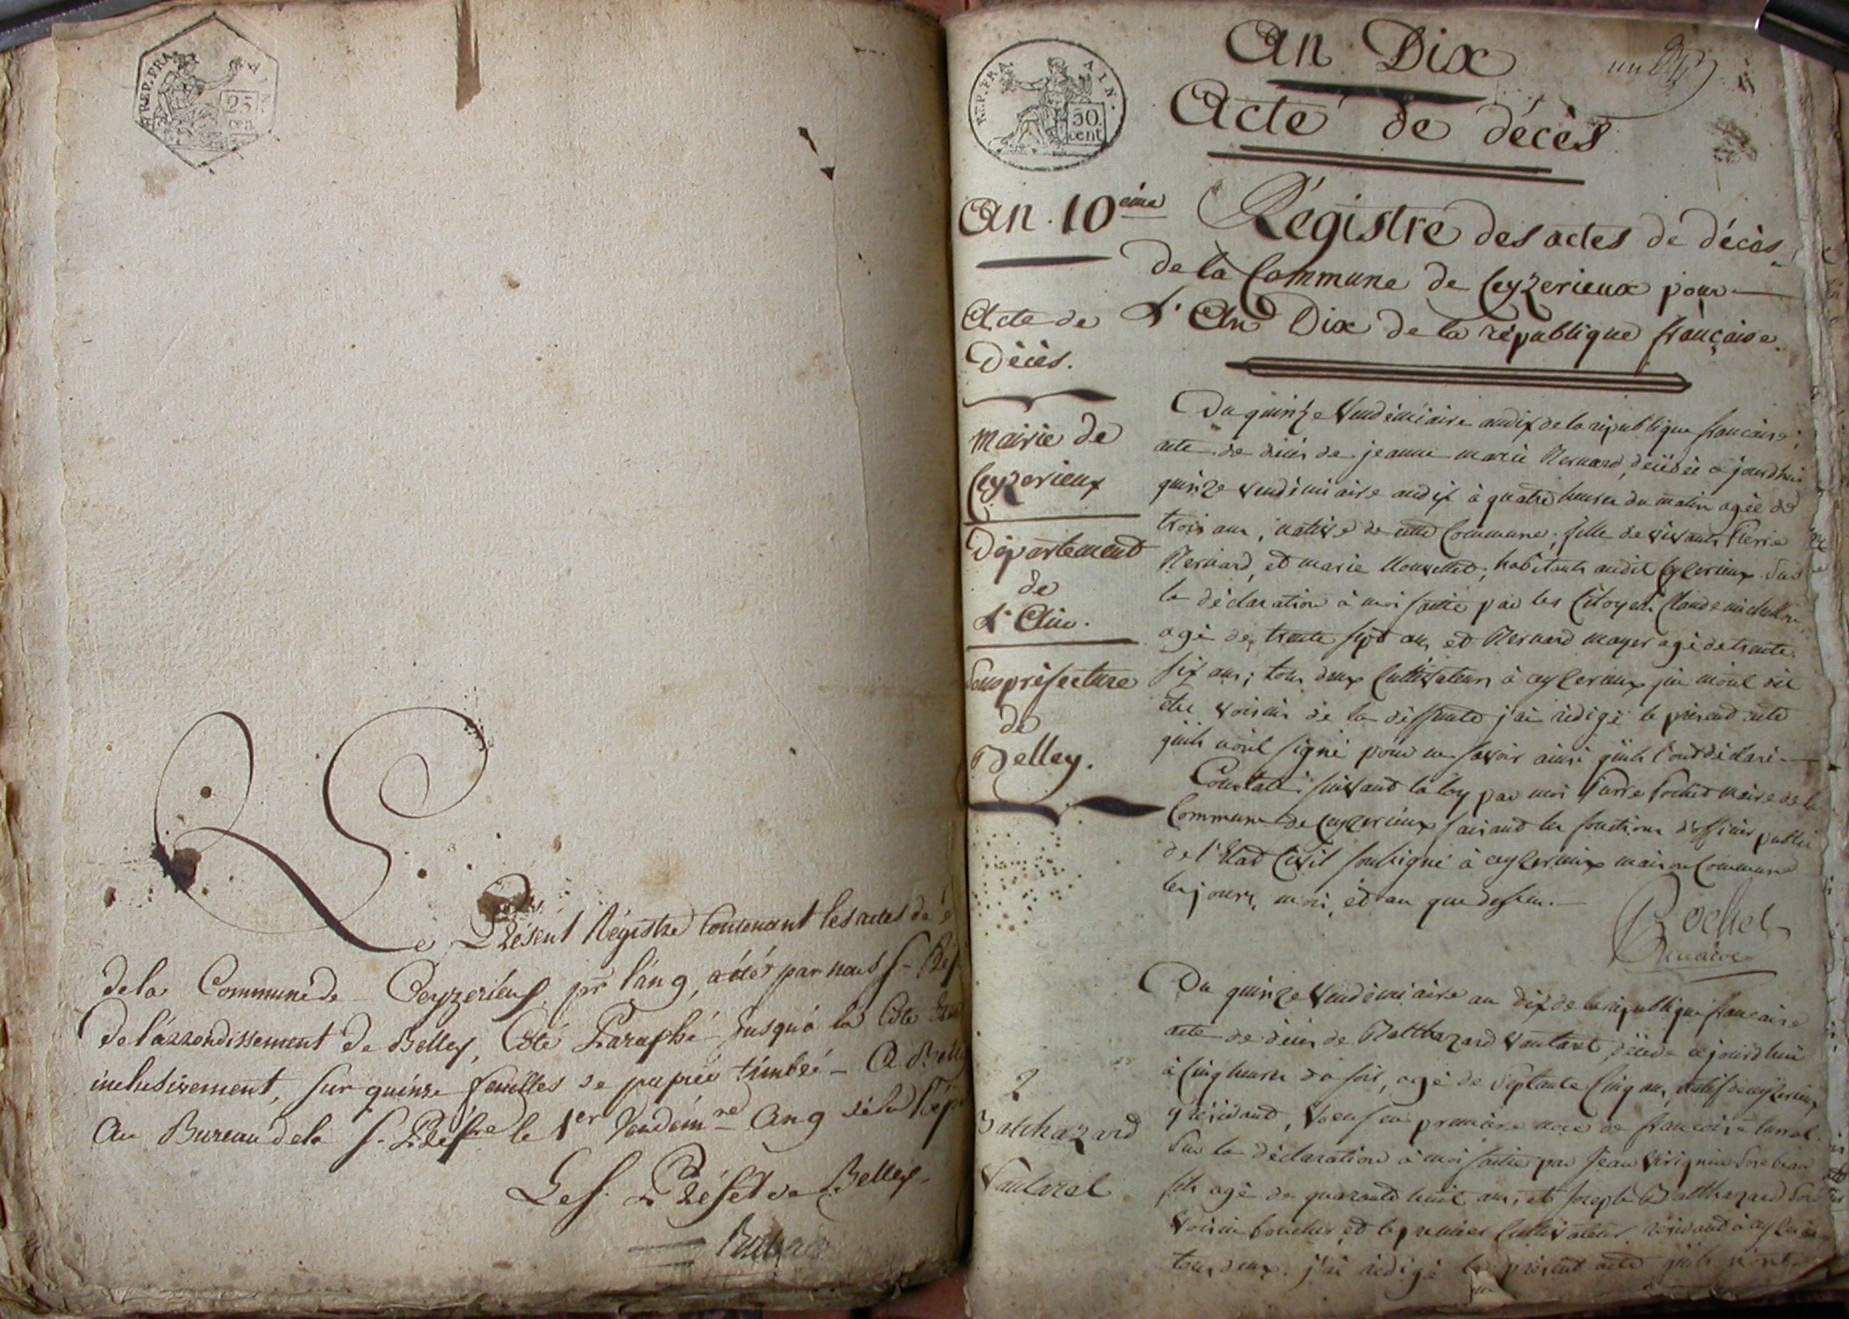 REP. FRA
25
cen
Le Présent Régistre Contenant les actes de
de la Commune de Ceyzérieux pr l'an 9, a été par nous S. Préf
de l'arrondissement de Belley, Coté Paraphé jusqu'à la Cote
inclusivement, sur quinze feuilles de papier timbré - A Belley
Au Bureau de la S. Préfre le 1er Vendém.re an 9 de la Rép
Le S. Préfet de Belley.
REP. FRA
AIN.
50
cent
An Dix
un
Acte de décès
An 10ème
Régistre des actes de décès
de la Commune de Ceyzerieux pour
L'An Dix de la république française.
Acte de
Décès.
Mairie de
Ceyzerieux
Département
de
L'Ain.
Souspréfecture
de
Belley.
Du quinze Vendémiaire an dix de la république française,
acte de décès de jeanne marie Bernard, décédée ce jourd'hui
quinze vendémiaire an dix à quatre heures du matin agée de
trois ans, native de cette Commune, fille de vivants Pierre
Bernard, et marie habitants audit Ceyzerieux. Sur
la déclaration à moi faite par les Citoyens Claude
agé de trente sept ans et Bernard mayer agé de trente
six ans; tous deux Cultivateurs à ceyzerieux qui m'ont dit
etre voisins de la deffunte j'ai rédigé le présent acte
quils n'ont signé pour ne savoir ainsi quils l'ont déclaré
Constaté suivant la loy par moi Pierre Rochet maire de la
Commune de Ceyzerieux faisant les fonctions d'officier public
de l'Etat Civil soussigné à ceyzerieux maison Commune
les jours, mois, et an que dessus.
Rochet
maire
Du quinze Vendémiaire an dix de la république francaise
acte de décès de Balthazard Vautaret, décédé ce jourd'hui
à Cinq heures du soir, agé de septante Cinq ans, natif de ceyzerieux
y résidant, veuf en première noce de francoise
2
Balthazard
Vautaret
Sur la déclaration à moi faite par Jean
fils agé de quarante huit ans, et Joseph Balthezard
voisin boucher, et le premier Cultivateur résidant à ceyzerieux
tous deux. j'ai rédigé le présent acte quils n'ont